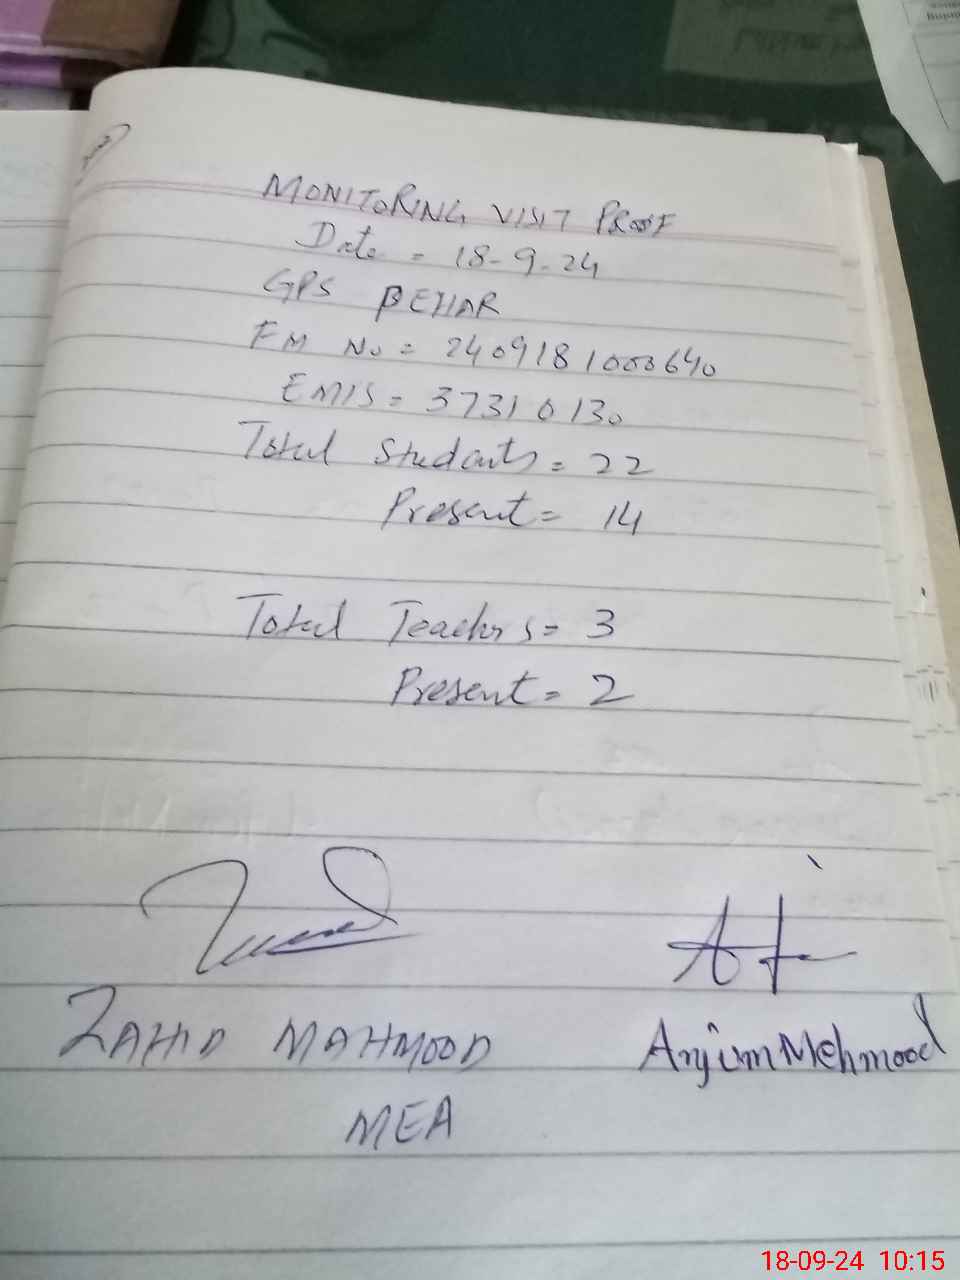 MONITORING VISIT PROOF
Date = 18-9-24
GPS BEHAR
FM No = 2409181000640
EMIS = 37310130
Total Students = 22
Present = 14
Total Teachrs = 3
Present = 2
ZAHID MAHMOOD
Anjum Mehmood
MEA
18-09-24 10:15